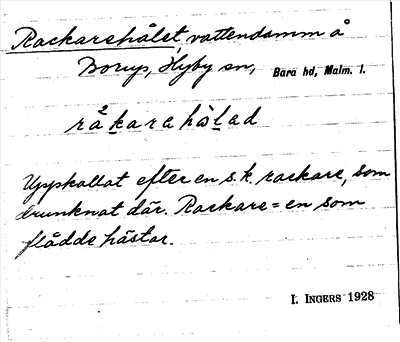 Rackarehålet, vattendamm å
Borup, Hyby sn, Bara hd, Malm. l.
rå²karehålad
Uppkallat efter en s.k. rackare, som
drunknat där. Rackare = en som
flådde hästar.
I. INGERS 1928